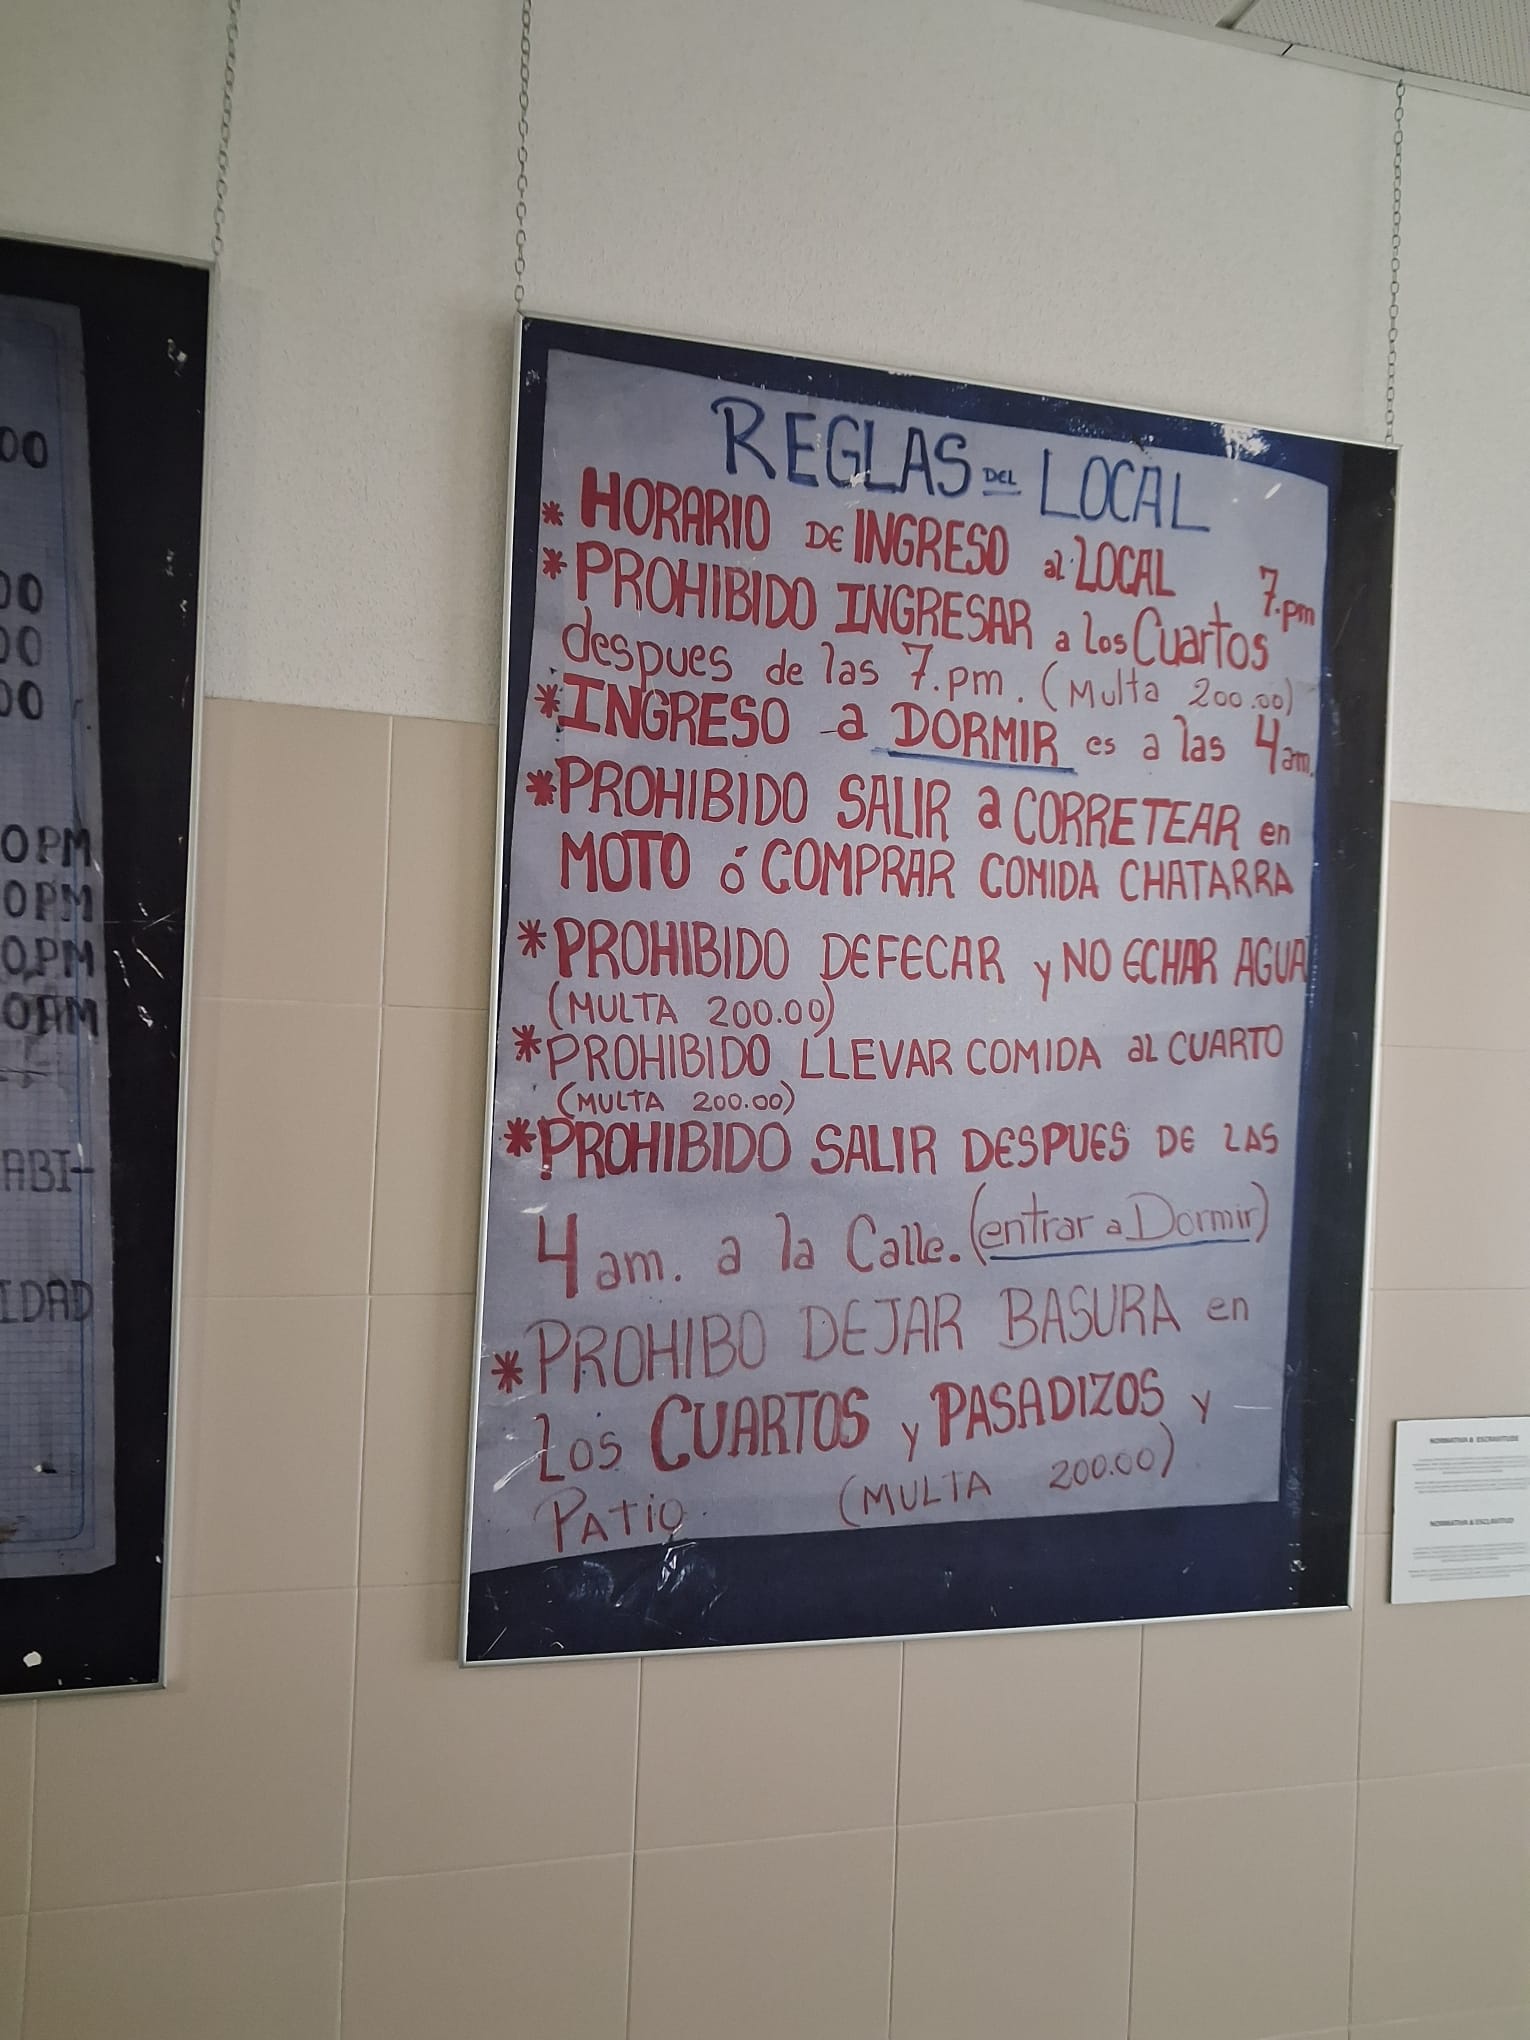 00
00
00
00
0 PM
0 PM
0 PM
0 AM
ABI-
IDAD
REGLAS DEL LOCAL
* HORARIO DE INGRESO al LOCAL 7.pm
* PROHIBIDO INGRESAR a los Cuartos
despues de las 7.pm. (Multa 200.00)
* INGRESO a DORMIR es a las 4am.
* PROHIBIDO SALIR a CORRETEAR en
MOTO ó COMPRAR COMIDA CHATARRA
* PROHIBIDO DEFECAR y NO ECHAR AGUA
(MULTA 200.00)
* PROHIBIDO LLEVAR COMIDA al CUARTO
(MULTA 200.00)
* PROHIBIDO SALIR DESPUES DE LAS
4 am. a la Calle. (entrar a Dormir)
* PROHIBO DEJAR BASURA en
Los CUARTOS y PASADIZOS y
PATIO (MULTA 200.00)
NORMATIVA & ESCRAVITUDE
NORMATIVA & ESCLAVITUD